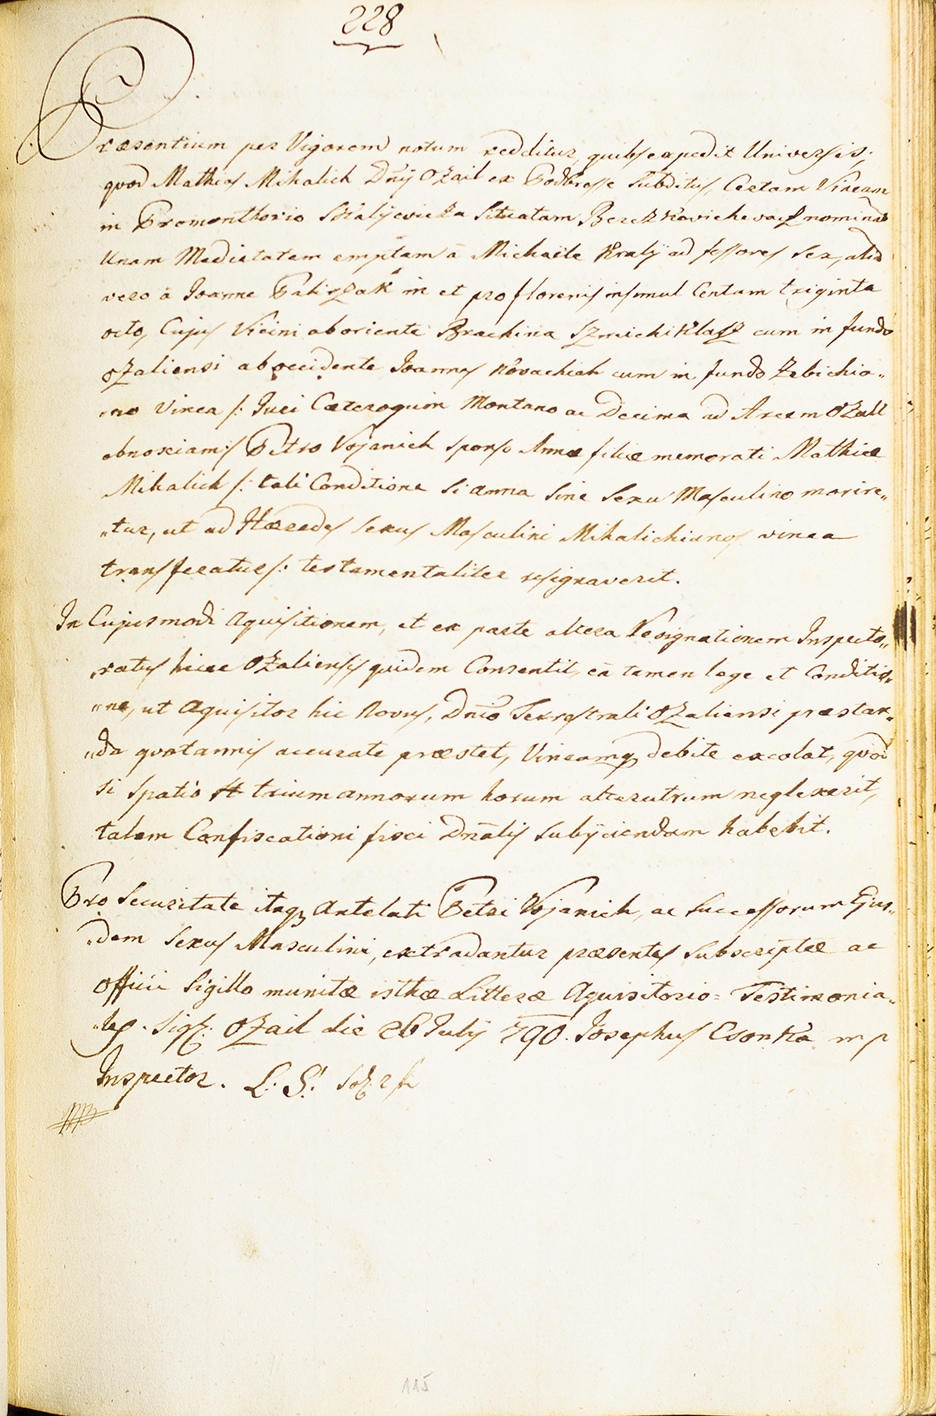 228
Præsentium per Vigorem notum redditur, quibs expedit Universis;
quod Mathias Mihalich Dnÿ Ozail ex Podbresse Subditus Certam Vineam
in Promonthorio Situatam nominatā
Unam Medietatem emptam ā Michaële Kralÿ ad fossores Sex, aliā
vero ā Joanne in et pro florenis insimul Centum triginta
octo, Cujus Vicini ab oriente Brachina cum in fundo
Ozaliensi ab occidente Joannes Kovachich cum in fundo Zebichia„
„no Vinea /: Juri Cæteroquin Montano ac Decimæ ad Arcem Ozail
obnoxiam:/ Petro Vojanich Sponso Annæ filiæ memorati Mathiæ
Mihalich /: tali Conditione Si Anna Sine Sexu Masculino morire„
„tur, ut ad Hæredes Sexus Masculini Mihalichianos vinea
transferatur /: testamentaliter resignaverit.
In Cujusmodi Aquisitionem, et ex parte altera Resignationem Inspecto„
„ratus hicce Ozaliensis quidem Consentit, eā tamen lege et Conditio„
„ne, ut Aquisitor hic Novus, Dnīo Terrestrali Ozaliensi præstan„
„da quotannis accurate præstet, Vineamq debite excolat, quod
si Spatio trium annorum horum alterutrum neglexerit,
talem Confiscationi fisci Dnālis Subÿciendam habebit.
Pro Securitate itaq Antelati Petri Vojanich, ac Successorum Ejus„
„dem Sexus Masculini, extradantur præsentes Subscriptæ ac
officii Sigillo munitæ isthæ Litteræ Aquisitorio= Testimonia„
„les. Sig: Ozail die 26 Julÿ 790. Josephus Csonka mp
Inspector. L: S:
115